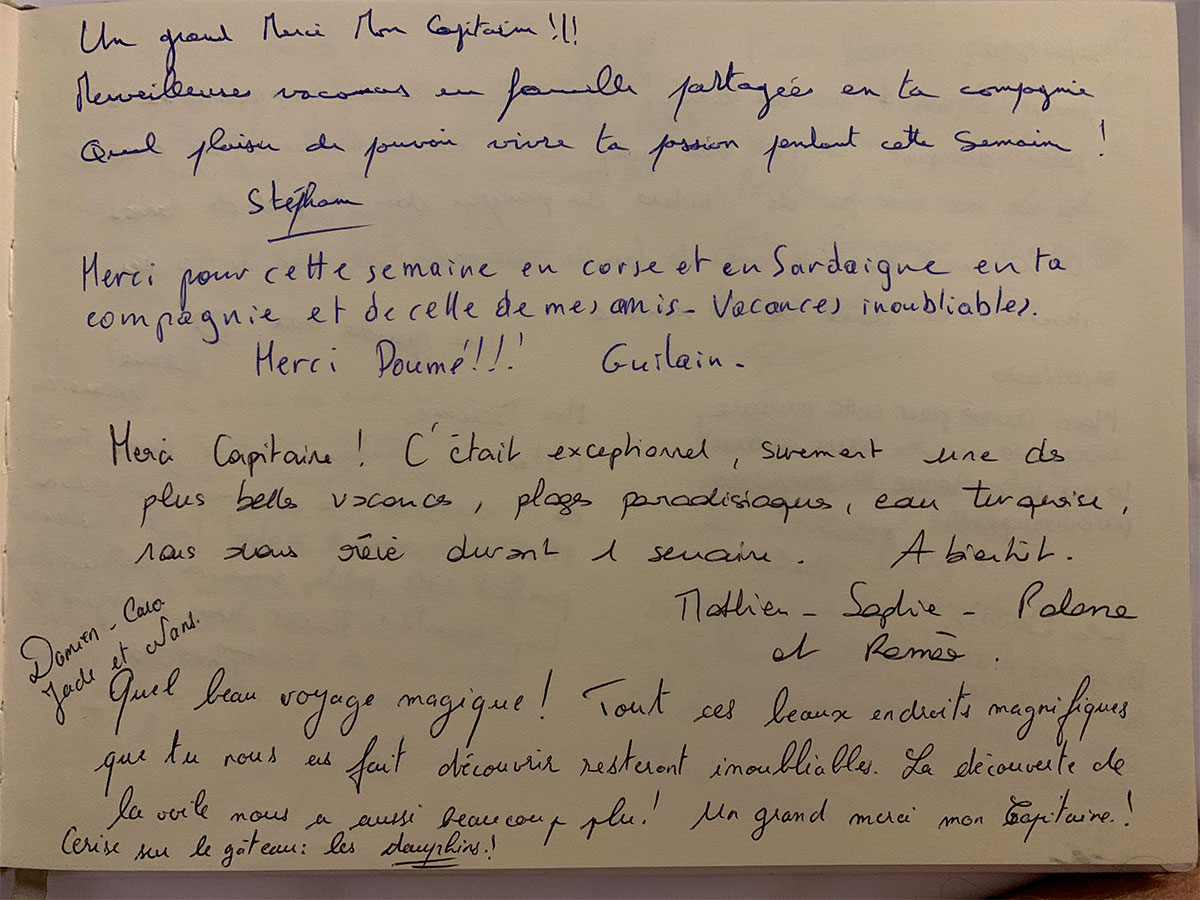 Un grand Merci Mon Capitaine !!!
Merveilleuses vacances en famille partagées en ta compagnie
Quel plaisir de pouvoir vivre ta passion pendant cette Semaine !
Stéphane
Merci pour cette semaine en corse et en Sardaigne en ta
compagnie et de celle de mes amis - Vacances inoubliables.
Merci Doumé !!! Guilain -
Merci Capitaine ! C'était exceptionnel, surement une des
plus belles vacances, plages paradisiaques, eau turquoise,
nous avons rêvé durant 1 semaine. A bientôt.
Mathieu - Sophie -
et Roméo.
Damien - Cara
Jade et Nans.
Quel beau voyage magique ! Tout ces beaux endroits magnifiques
que tu nous as fait découvrir resteront inoubliables. La découverte de
la voile nous a aussi beaucoup plu ! Un grand merci mon Capitaine !
Cerise sur le gâteau : les dauphins !